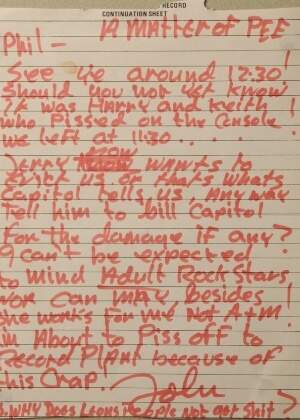 RECORD
CONTINUATION SHEET
A MATTER OF PEE
Phil —
See ye around 12:30!
Should you not yet know
it was Harry and Keith!
who pissed on the console
we left at 11:30 . . . .
Jerry now wants to
evict us or thats whats
Capitol tells us, Anyway
Tell him to bill Capitol
For the damage if any?
I can't be expected
to mind Adult Rock Stars
nor can May besides!
she works for me not A+M!
im About to Piss off to
Record Plant because of
this Crap!
John
WHY DOES LEONS PEOPLE NOT get shit?